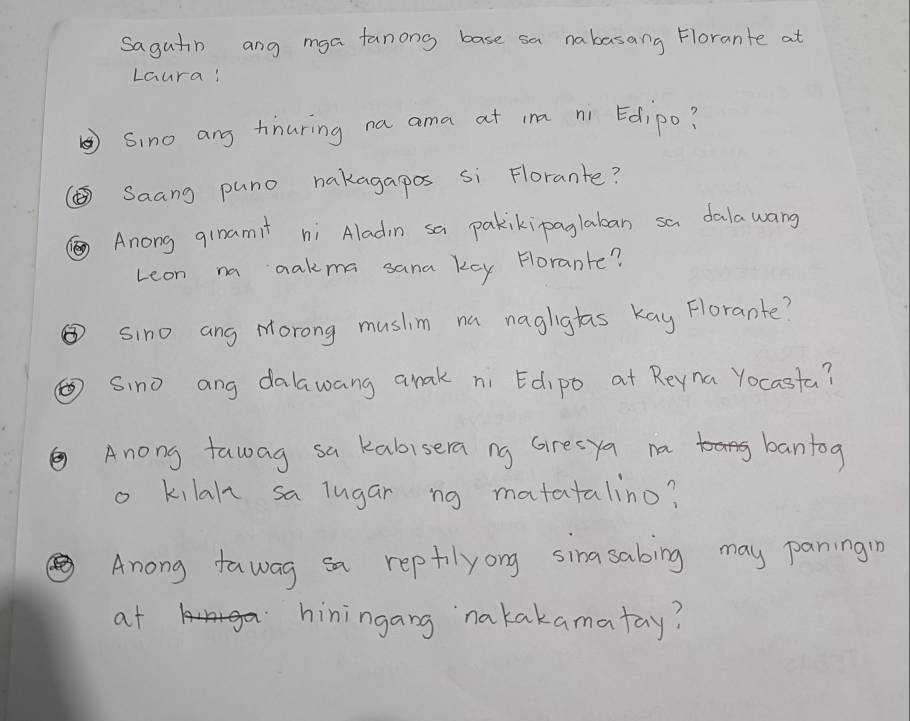 Sagutin ang mga tanong base sa nabasang Florante at
Laura:
Sino ang tinuring na ama at ina ni Edipo?
Saang puno nakagapos si Florante?
Anong ginamit ni Aladin sa pakikipaglaban sa dalawang
Leon na aakma sana kay Florante?
Sino ang Morong muslim na nagligtas kay Florante?
Sino ang dalawang anak ni Edipo at Reyna Yocasta?
Anong tawag sa kabisera ng Gresya na bantog
o kilala sa lugar ng matatalino?
Anong tawag sa reptilyong sinasabing may paningin
at hiningang nakakamatay?